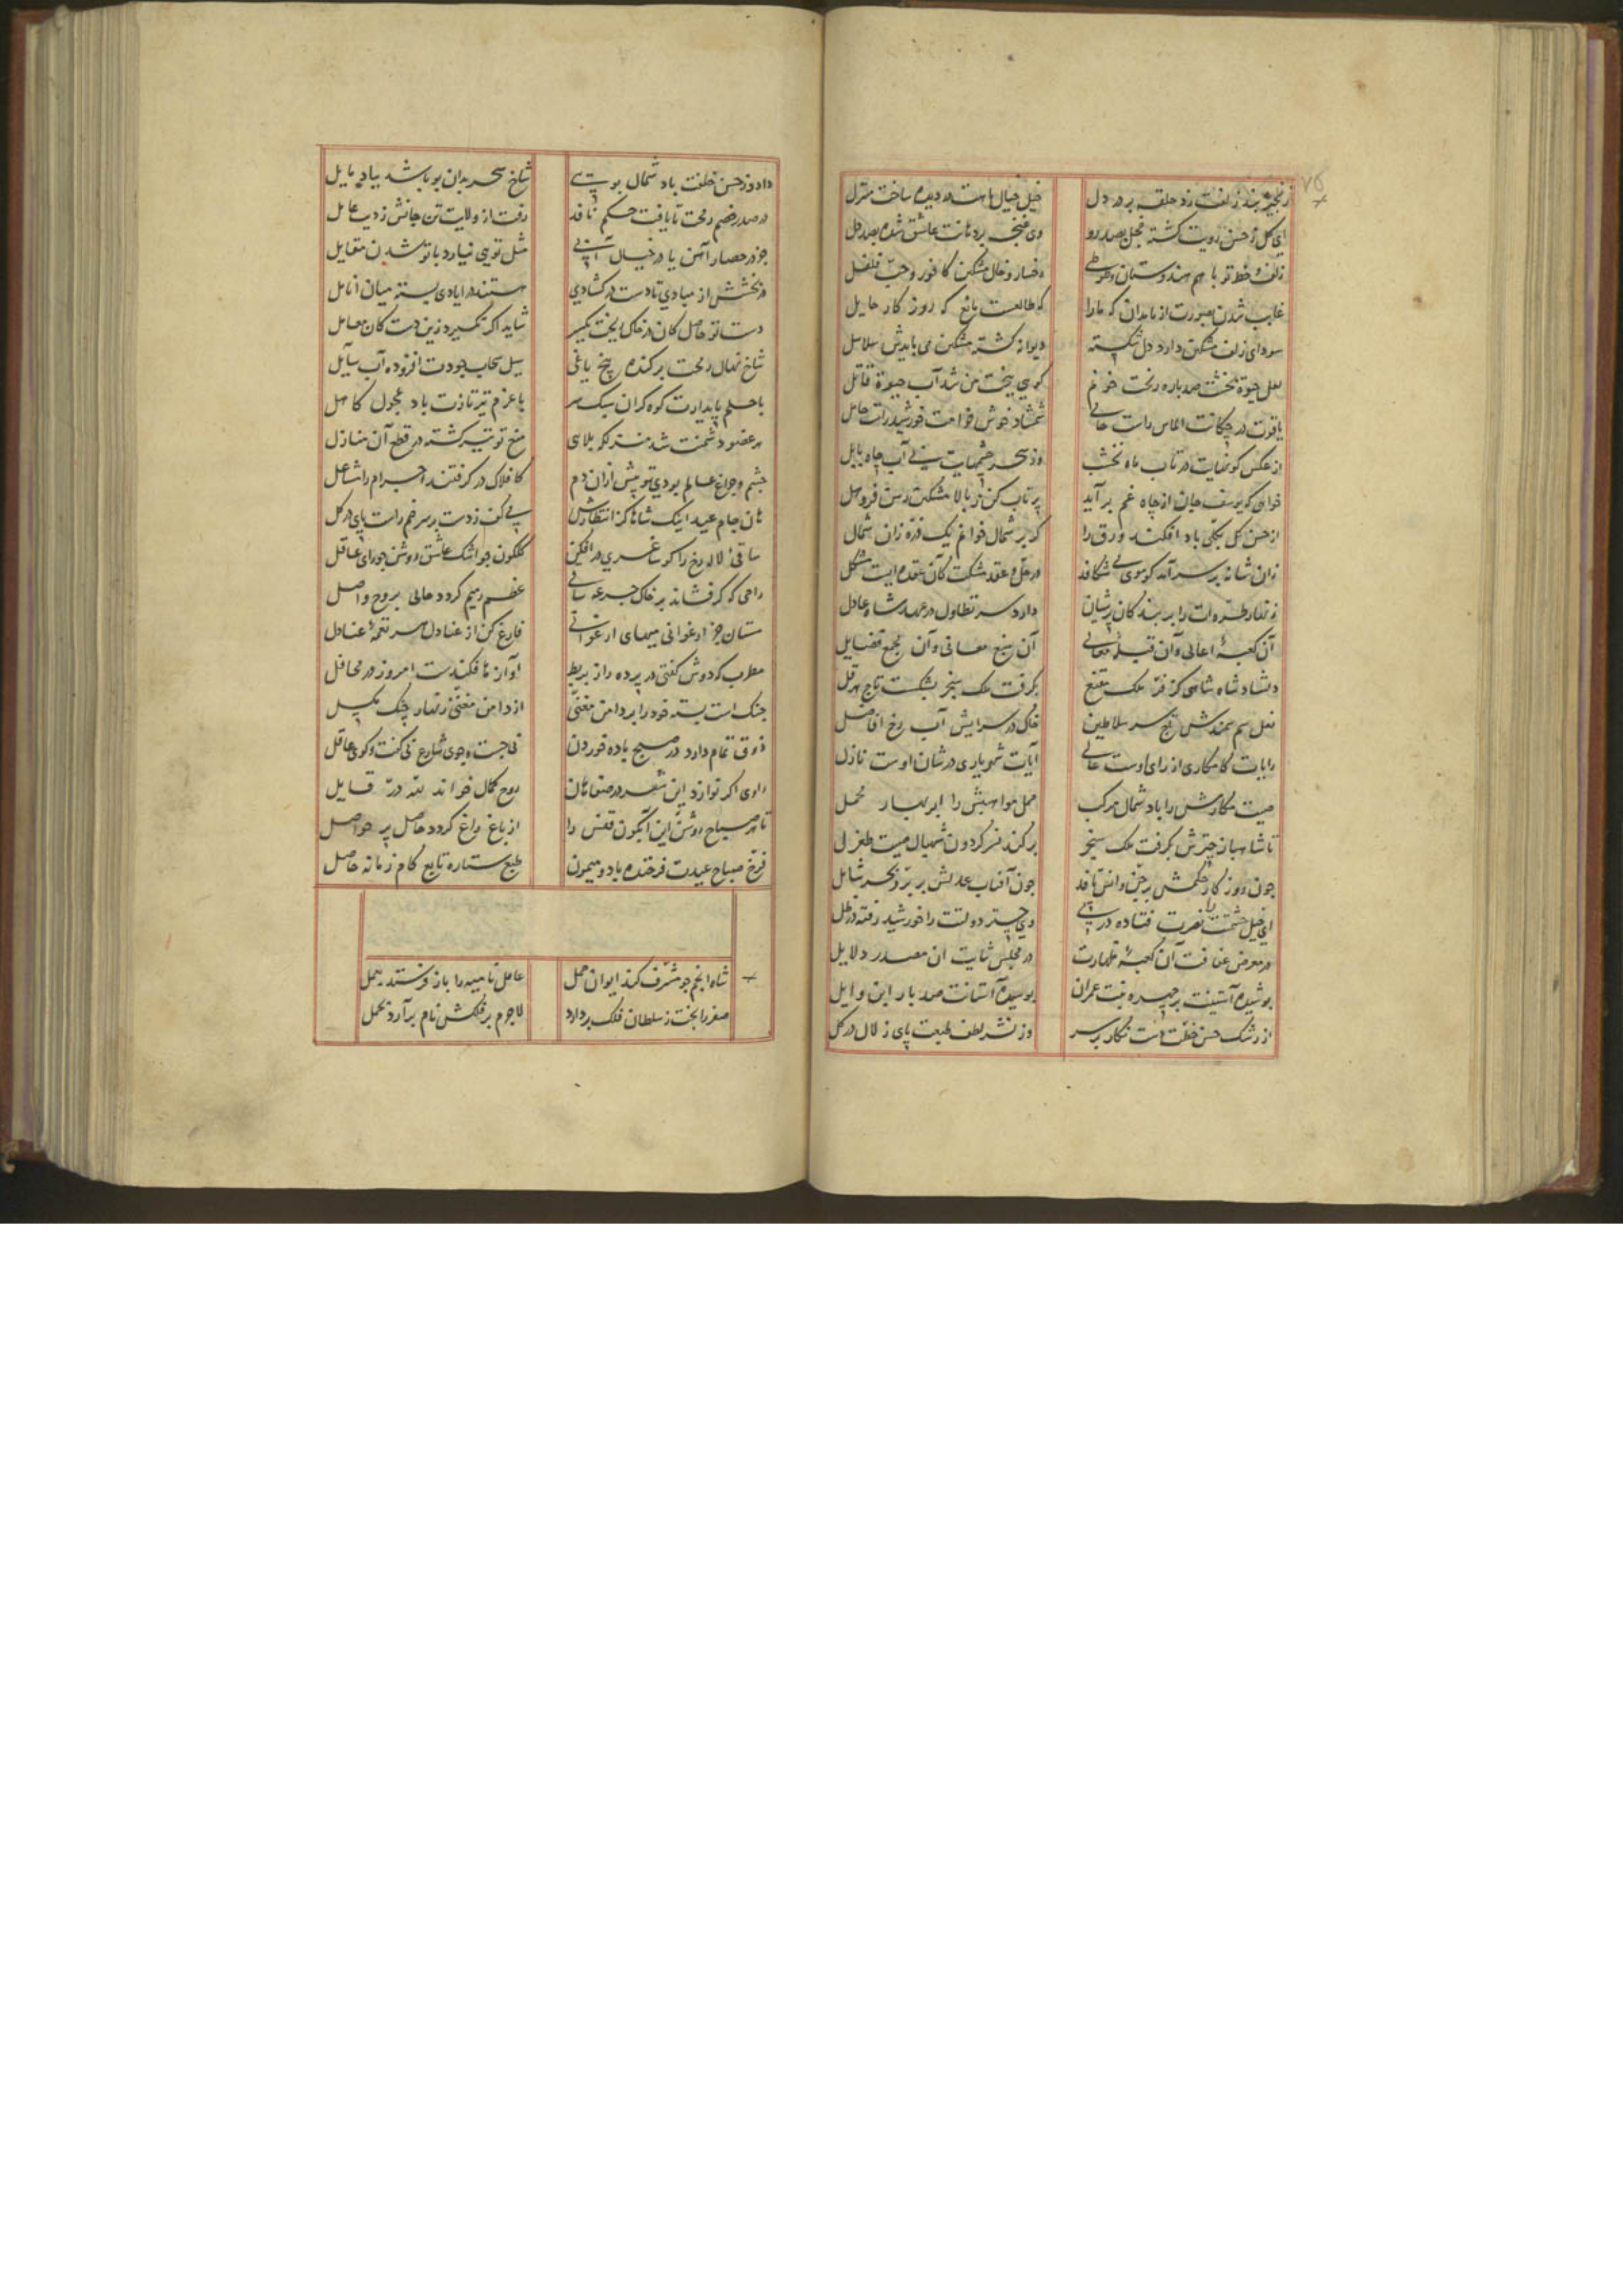 زنجیر بند زلفت زد حلقه بر در دل خیل خیال ماهت در دیده ساخت منزل
ای گل ز حسن رویت گشته خجل بصد رو وی غنچه بر دهانت عاشق شده بصد دل
زلف و خط تو با هم هندوستان و طوطی رخسار و خال مشکین کافور و حب فلفل
غایب شدن ز مایدان که ما را که طالعست مانع که روزگار حایل
سودای زلف مشکین دارد دل شکسته دیوانه گشته مشکین می بایدش سلاسل
لعل حیوة بخشت صد باره ریخت خونم گویی ببخت من شد آب حیوة قاتل
یاقوت در چکانت الماس راست شمشاد خوش خرامت خورشید راست حامل
از عکس گونهایت در تاب ماه نخشب وز سحر چشمهایت بی آب چاه بابل
خواهی که یوسف جان از چاه غم بر آید پرتاب کن ز بالا مشکین رسن فروهل
از حسن گل بکلی باد افکند ورق را گر بر شمال خوانم یک ذره زان شمال
زان شانه بر سر آمد کو موی می شکافد در حل و عقد مشکت کان عقده ایست مشکل
زنهار طره ات را بر بندگان پریشان دارد سر تطاول در عهد شاه عادل
آن کعبهٔ اعالی و آن قبلهٔ معالی آن منبع معانی و آن مجمع فضایل
دلشاد شاه شاهی کز فر ملک مقنع بگرفت ملک سنجر بشکست تاج هرقل
نعل سم سمندش تاج سر سلاطین خاک در سرایش آب رخ افاضل
رایات کامکاری از رای اوست عالی آیات شهریاری در شان اوست نازل
صیت مکارمش را باد شمال مرکب حمل مواهبش را ابر بهار محمل
تا شاهباز چترش بگرفت ملک سنجر بر کند نسر گردون شهبال صیت طغرل
چون روزگار حکمش بر جن و انس نافذ چون آفتاب عدلش بر بر و بحر شامل
ای خیل حشمتت را نصرت فتاده در پی وی چتر دولتت را خورشید رفته در ظل
در معرض عفافت آن کعبهٔ طهارت در مجلس ثابت ان مصدر دلایل
پوشیده آستینت بر چهره بنت عمران بوسیده آستانت صد بار ابن وایل
از رشک حسن خطت دست نگار بر سر وز نشر لطف طبعت پای زلال در گل
دادوز حسن خلقت باد شمال بویی شاخ سحر بدان بو باشد بباد مایل
در صدر خصم رمحت تا یافت حکم نافذ رفت از ولایت تن جانش زدیب عامل
جز در حصار آهن یا در خیال آبی مثل تویی نیارد با تو شدن مقابل
در بخشش از مبادی تا دست در گشادی هستند در ایادی بسته میان انامل
دست تو حاصل کان در خاک ریخت یکسر شاید اگر نگیرد زین دست کان معامل
شاخ نهال رمحت بر کنده بیخ یاغی سیل سحاب جودت افزوده آب سایل
با حلم پایدارت کوه گران سبک سر با عزم تیز تازت باد عجول کاهل
هر عضو دشمنت شد منزلگه بلای تیغ تو تیز گشته در قطع آن منازل
چشم و چراغ عالم بودی تو پیش ازان دم کافلاک در گرفتند اجرام را مشاعل
هان جام عید اینک شاها کز انتظارش می کف ز دست بر سر خم راست پای در گل
ساقی لاله رخ را گو ساغری در افکن گلگون جو اشک عاشق روشن چو رای عاقل
راحی که گر فشاند بر خاک جرعه ساقی عظم رمیم گردد حالی بروح واصل
مستان جز ارغوانی میهای ارغوانی فارغ کن از عنادل هر نغمهٔ عنادل
مطرب که دوش گفتی در پرده راز بربط آوازها فکندست امروز در محافل
چنگ است بسته خود را بر دامن مغنی از دامن مغنی زنهار چنگ مگسل
ذوقی تمام دارد در صبح باده خوردن نی جست و جوی شارع نی گفت و گوی عاقل
راوی اگر نوازد این شعر در صفاهان روح کمال خواند لله در قایل
تا هر صباح روشن این آبگون قفس را از باغ راغ گردد حاصل پر حواصل
فرخ صباح عیدت فرخنده باد و میمون طبع ستاره تابع کام زمانه حاصل
شاه انجم چو مشرف کند ایوان حمل عامل نامیه را باز فرستد بعمل
صفر را بخت ز سلطان فلک بر دارد لاجرم بر فلکش نام بر آرد بحمل